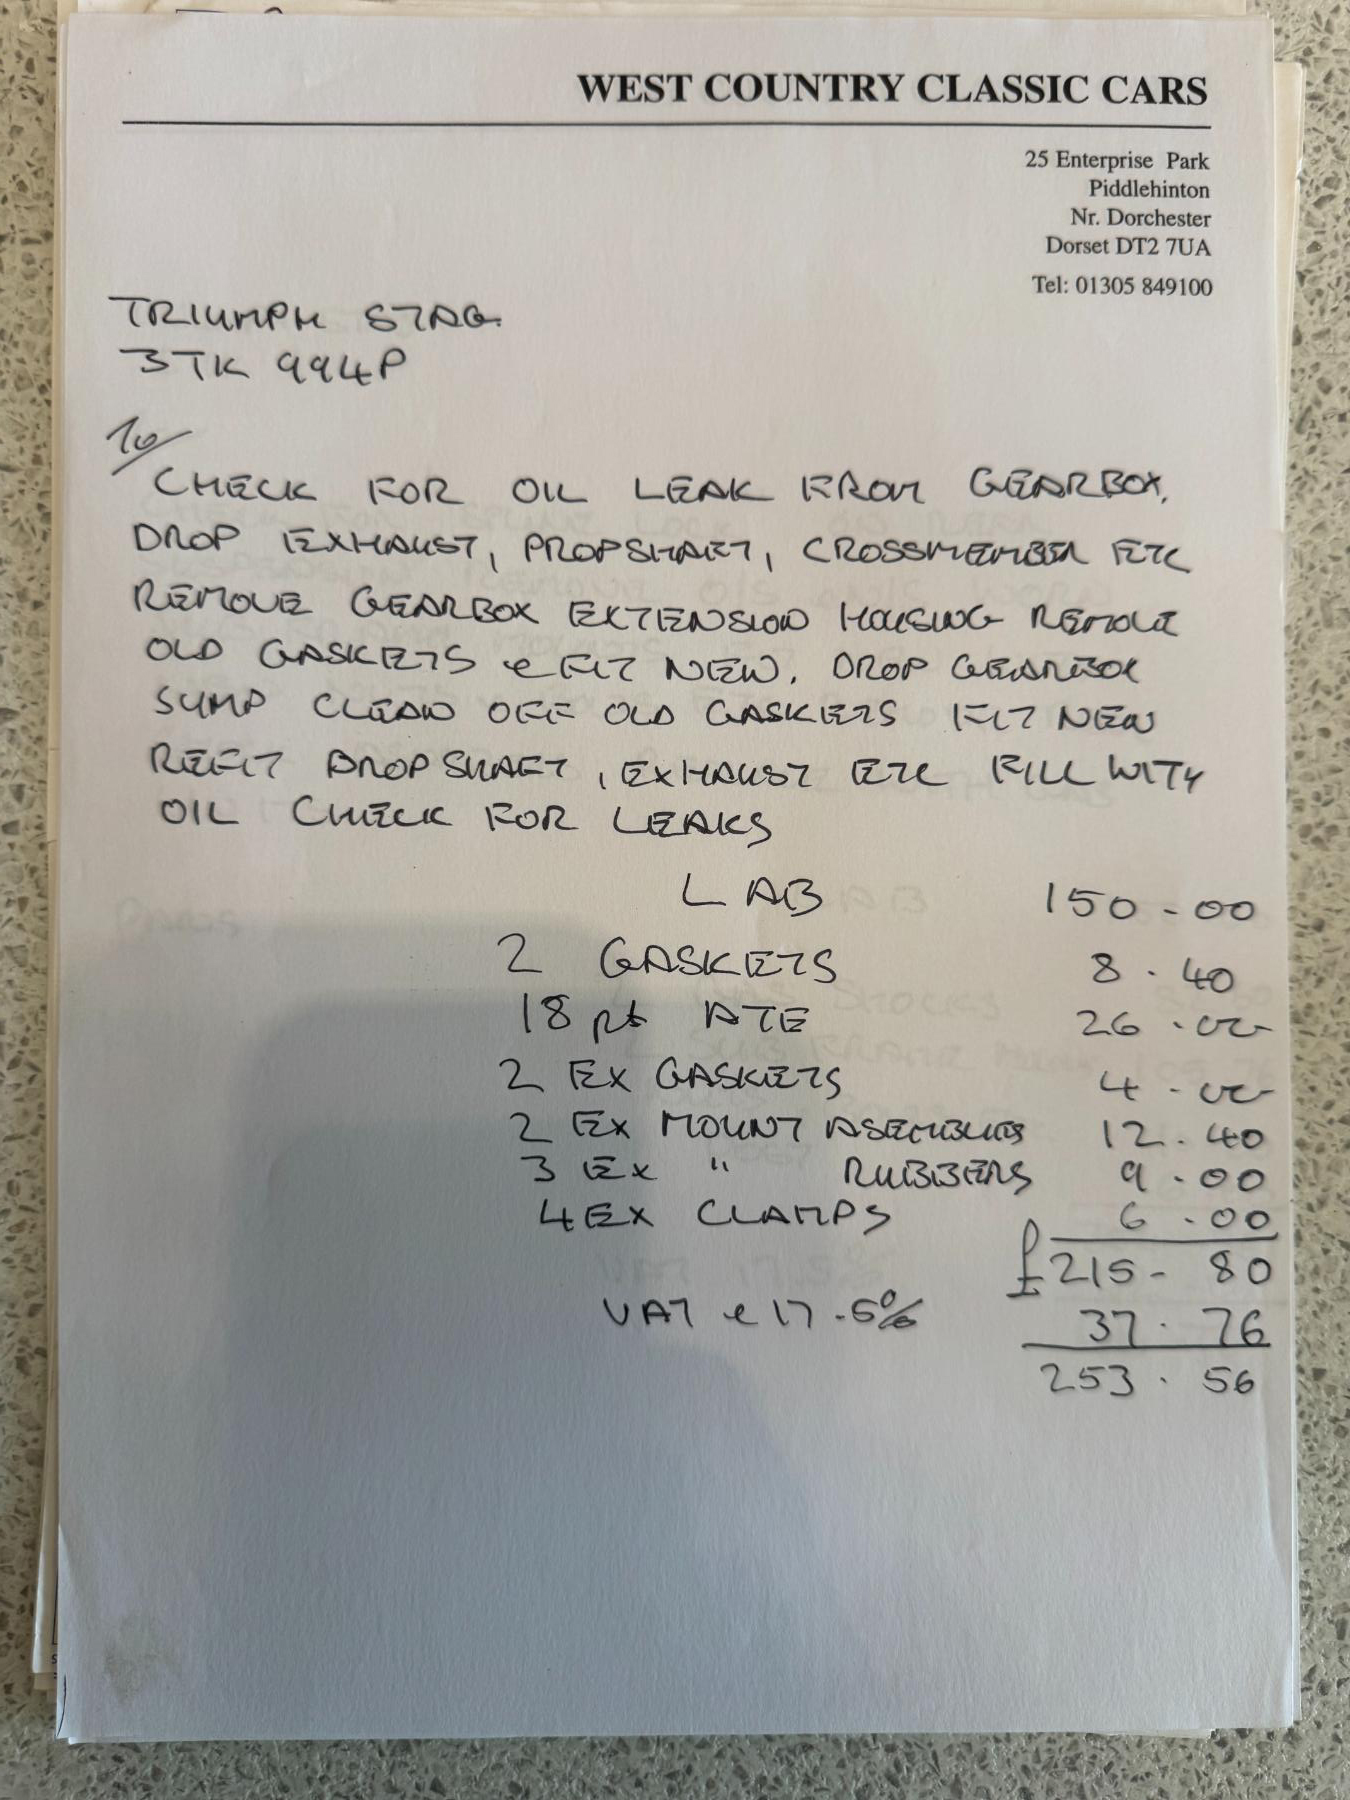 WEST COUNTRY CLASSIC CARS
25 Enterprise Park
Piddlehinton
Nr. Dorchester
Dorset DT2 7UA
Tel: 01305 849100
TRIUMPH STAG
3TK 994P
To/
CHECK FOR OIL LEAK FROM GEARBOX.
DROP EXHAUST, PROPSHAFT, CROSSMEMBER ETC
REMOVE GEARBOX EXTENSION HOUSING REMOVE
OLD GASKETS & FIT NEW. DROP GEARBOX
SUMP CLEAN OFF OLD GASKETS FIT NEW
REFIT PROPSHAFT, EXHAUST ETC FILL WITH
OIL CHECK FOR LEAKS
LAB 150-00
2 GASKETS 8.40
18 pt ATF 26.00
2 EX GASKETS 4-00
2 EX MOUNT ASEMBLIES 12.40
3 EX " RUBBERS 9-00
4 EX CLAMPS 6.00
£215-80
VAT @ 17.5% 37.76
253.56